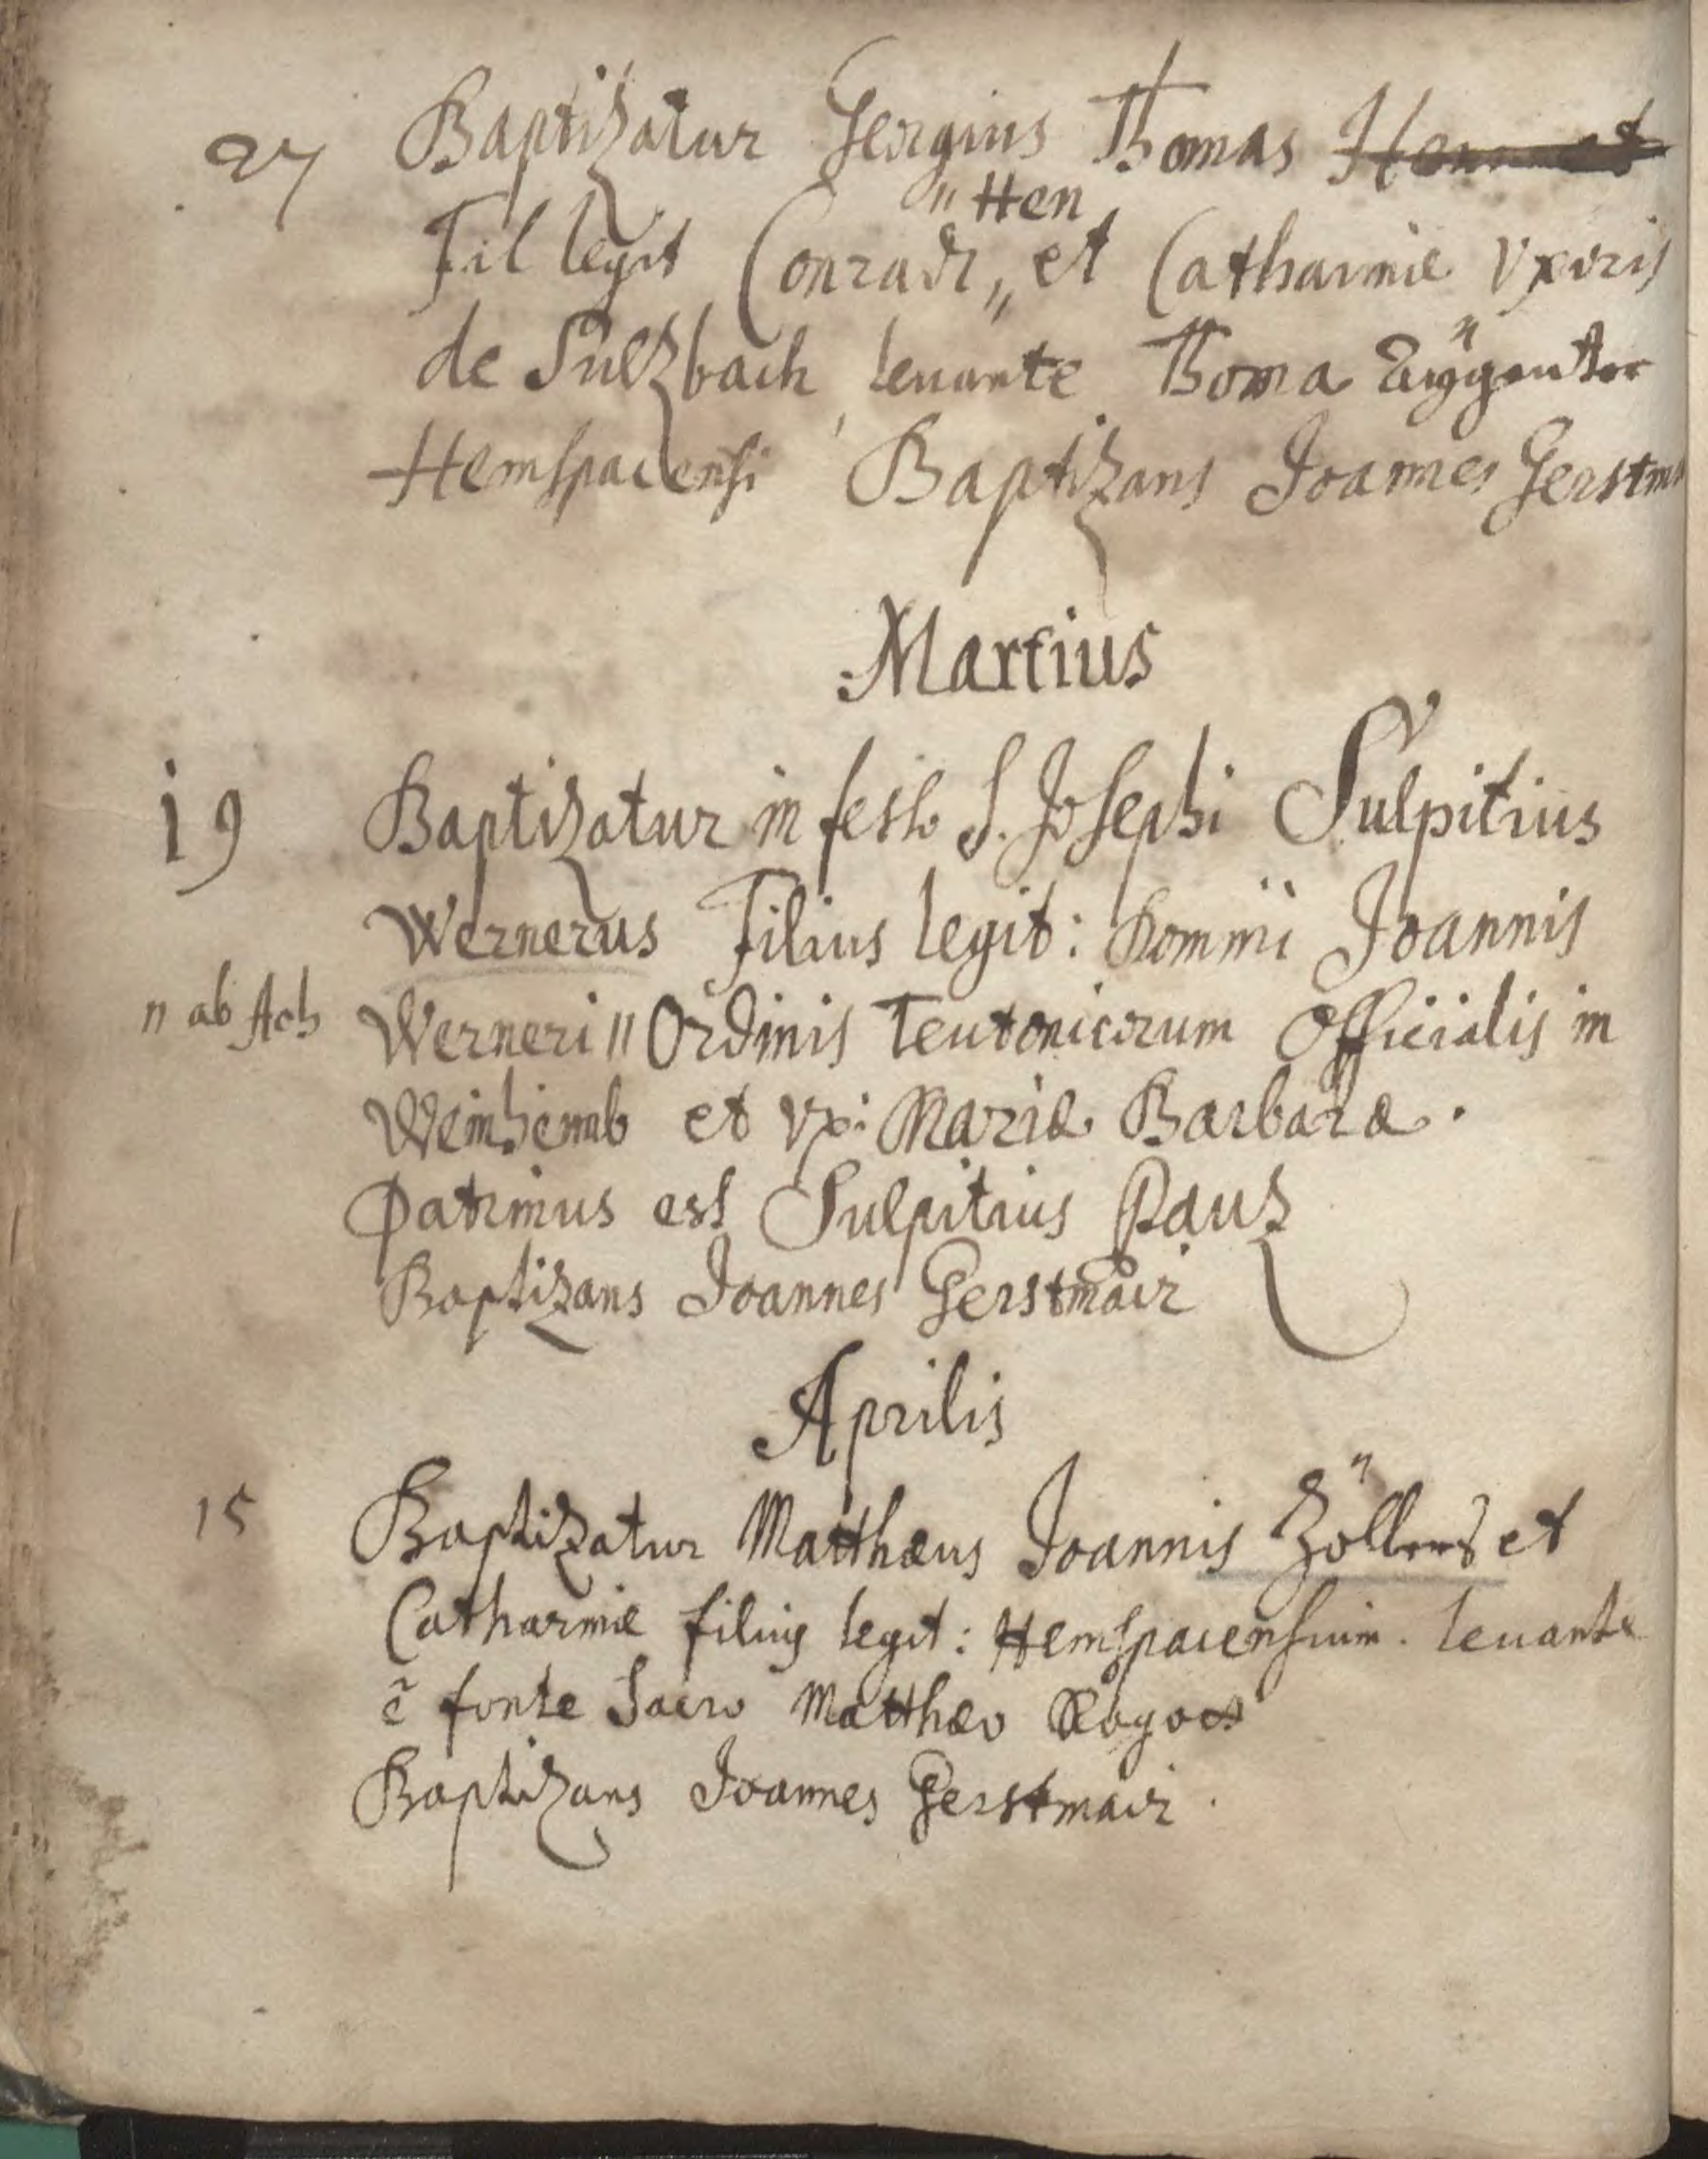 27 Baptizatur Georgius Thomas
" Hen
Fil legit Conradi " et Catharinæ Vxoris
de Sulzbach, leuante Thoma
Hemspacensi Baptizans Joannes Gerstm
Martius
19 Baptizatur in festo S. Josephi Sulpitius
Wernerus Filius legit: Domini Joannis
" ab Ach Werneri " Ordinis Teutonicorum Officialis in
Weinhemb et Vx: Mariæ Barbaræ.
Patrinus est Sulpitius Pauz
Baptizans Joannes Gerstmair
Aprilis
15 Baptizatur Matthæus Joannis Zöllers et
Catharinæ filius legit: Hemspacensium. leuante
è fonte Sacro Matthæo
Baptizans Joannes Gerstmair.